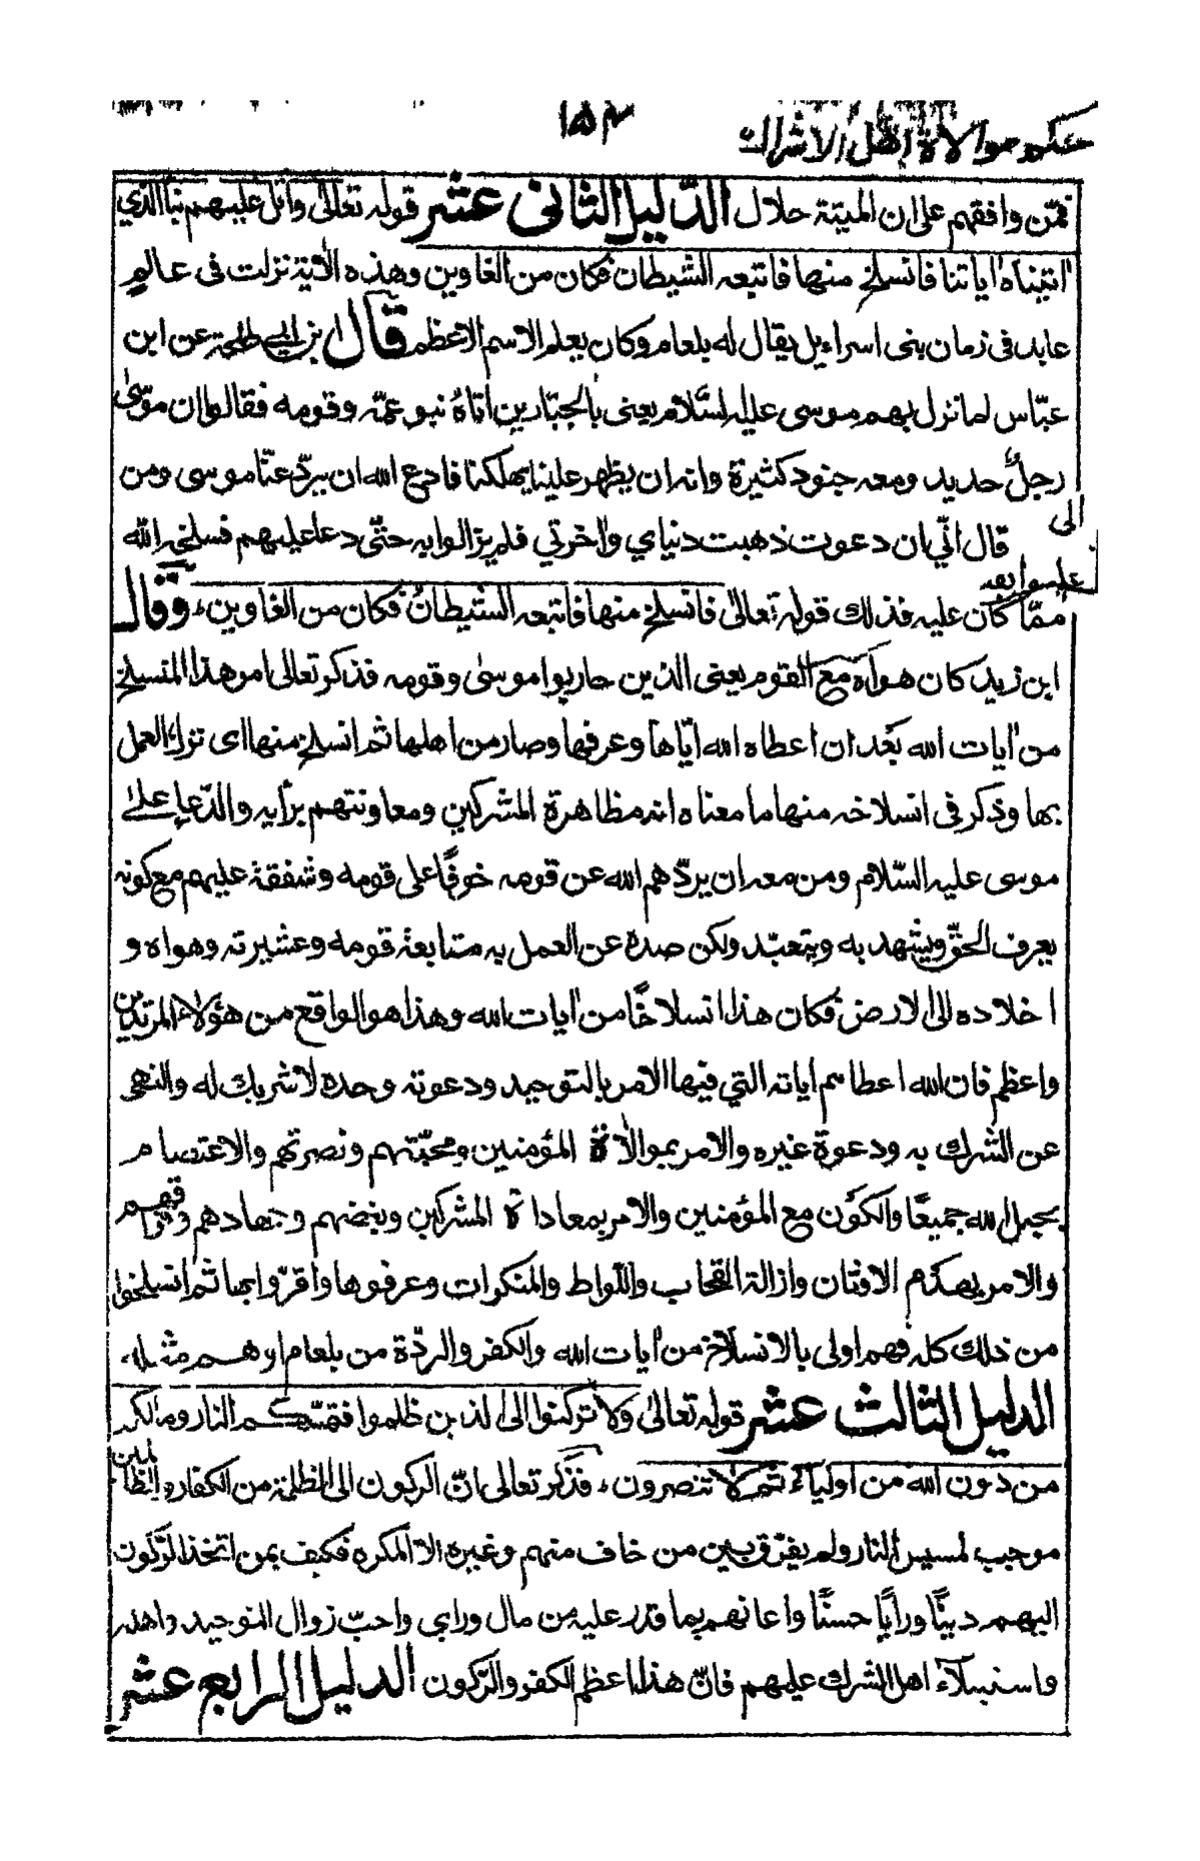 حكم موالاة اهل الاشراك ١٥٤
فمّن وافقهم على ان الميتة حلال الدّليل الثانى عشر قوله تعالى واتل عليهم نبأ الذي
اتيناه اياتنا فانسلخ منها فاتبعه الشيطان فكان من الغاوين وهذه الاية نزلت فى عالمٍ
عابد فى زمان بنى اسراءيل يقال له بلعام وكان يعلم الاسم الاعظم قال ابن ابي طلحة عن ابن
عبّاس لما نزل بهم موسى عليه السّلام يعنى بالجبّارين اتاهُ بنو عمّه وقومه فقالوا ان موسٰى
رجلٌ حديد ومعه جنود كثيرة وانه ان يظهر علينا يهلكنا فادع الله ان يردّ عنّا موسى ومن
قال انّي ان دعوت ذهبت دنياي واٰخرتي فلم يزالوا به حتّى دعا عليهم فسلخه الله
ممّا كان عليه فذلك قوله تعالىٰ فانسلخ منها فاتبعه الشيطانُ فكان من الغاوين، وقال
ابن زيد كان هواه مع القوم يعنى الذين حاربوا موسىٰ وقومه فذكر تعالى امر هذا المنسلخ
من اٰيات الله بَعْد ان اعطاه الله ايّاها وعرفها وصار من اهلها ثم انسلخ منها اى ترك العمل
بها وذكر فى انسلاخه منها ما معناه انه مظاهرة المشركين ومعاونتهم برأيه والدّعاء علىٰ
موسى عليه السّلام ومن معه ان يردّهم الله عن قومه خوفًا على قومه وشفقة عليهم مع كونه
يعرف الحقّ ويشهد به ويتعبّد ولكن صده عن العمل به متابعة قومه وعشيرته وهواه و
اخلاده الى الارض فكان هذا انسلاخًا من اٰيات الله وهذا هو الواقع من هؤلاء المرتدين
واعظم فان الله اعطاهم اياته التي فيها الامر بالتوحيد ودعوته وحده لا شريك له والنهى
عن الشرك به ودعوة غيره والامر بموالاة المؤمنين ومحبّتهم ونصرتهم والاعتصام
بحبل الله جميعًا والكَوْن مع المؤمنين والامر بمعاداة المشركين وبغضهم وجهادهم وفراقهم
والامر بهدم الاوثان وازالة القحاب واللواط والمنكرات وعرفوها واقرّوا بها ثم انسلخوا
من ذلك كله فهم اولى بالانسلاخ من اٰيات الله والكفر والردّة من بلعام او هم مثله،
الدليل الثالث عشر قوله تعالىٰ ولا تركنوا الى الذين ظلموا فتمسّكم النار وما لكم
من دون الله من اولياء ثم لا تنصرون، فذَكَر تعالى انّ الركون الى الظلمة من الكفار والظالمين
موجب لمسيس النار ولم يفرّق بين من خاف منهم وغيره الا المكره فكيف بمن اتخذ الركون
اليهم دينًا ورأيًا حسنًا واعانهم بما قدر عليه من مال وراي واحبّ زوال التوحيد واهله
واستيلاء اهل الشرك عليهم فانّ هذا اعظم الكفر والركون الدليل الرابع عشر